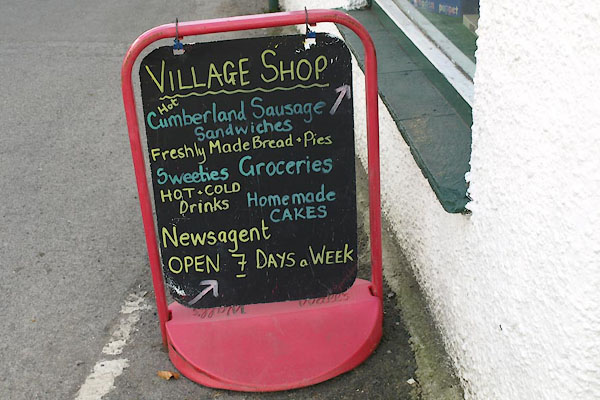 VILLAGE SHOP
Hot
Cumberland Sausage
Sandwiches
Freshly Made Bread + Pies
Sweeties Groceries
HOT + COLD
Drinks
Homemade
CAKES
Newsagent
OPEN 7 DAYS a WEEK